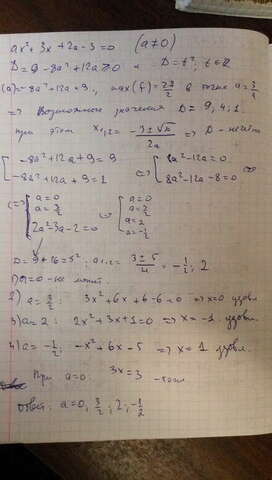 ax² + 3x + 2a - 3 = 0 (a ≠ 0)
D = 9 - 8a² + 12a ≥ 0 и D = t²; t ∈ Z
(a) = -8a² + 12a + 9; max(f) = 27/2 в точке a = 3/4
=> Возможные значения D = 9, 4, 1.
при этом x₁,₂ = (-3 ± √D)/2a => D - нечётн
[ -8a² + 12a + 9 = 9 <=> [ 8a² - 12a = 0 <=>
-8a² + 12a + 9 = 1 8a² - 12a - 8 = 0
<=> [ a = 0 <=> [ a = 0
a = 3/2 a = 3/2
2a² - 3a - 2 = 0 a = 2
a = -1/2
D = 9 + 16 = 5²; a₁,₂ = (3 ± 5)/4 = -1/2; 2
a = 0 - не может.
2) a = 3/2: 3x² + 6x + 6 - 6 = 0 => x = 0 удовл.
3) a = 2: 2x² + 3x + 1 = 0 => x = -1 удовл.
4) a = -1/2: -x² + 6x - 5 => x = 1 удовл.
При a = 0: 3x = 3
Ответ: a = 0; 3/2; 2; -1/2